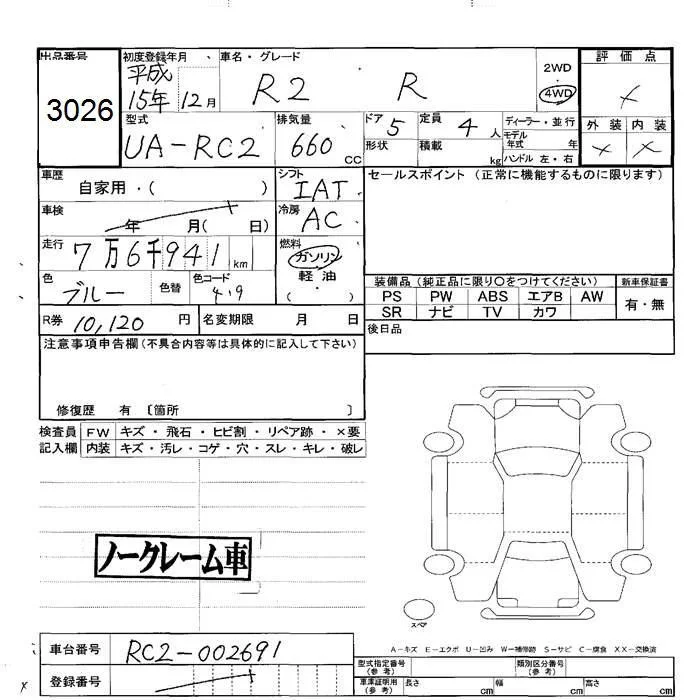 出品番号 初度登録年月 車名・グレード 評価点
3026 平成 15年 12月 R2 R 2WD 4WD ×
型式 排気量 ドア 定員 ディーラー・並行 外装 内装
UA-RC2 660 CC 5 4 人 モデル 年式 年 × ×
形状 積載 kg ハンドル 左・右
車歴 自家用・( ) シフト IAT セールスポイント (正常に機能するものに限ります)
車検 年 月( 日) 冷房 AC
走行 7万6千941 km 燃料 ガソリン
軽・油
色 ブルー 色替 色コード 4.9 ( ・ )
装備品 (純正品に限り○をつけてください) 新車保証書
PS PW ABS エアB AW 有・無
SR ナビ TV カワ
R券 10,120 円 名変期限 月 日 後日品
注意事項申告欄(不具合内容等は具体的に記入して下さい)
修復歴 有 〔箇所 〕
検査員 FW キズ・飛石・ヒビ割・リペア跡・×要
記入欄 内装 キズ・汚レ・コゲ・穴・スレ・キレ・破レ
ノークレーム車
スペア
A-キズ E-エクボ U-凹み W-補修跡 S-サビ C-腐食 XX-交換済
車台番号 RC2-002691
型式指定番号 (参考) 類別区分番号 (参考)
登録番号
車庫証明用 (参考) 長さ cm 幅 cm 高さ cm